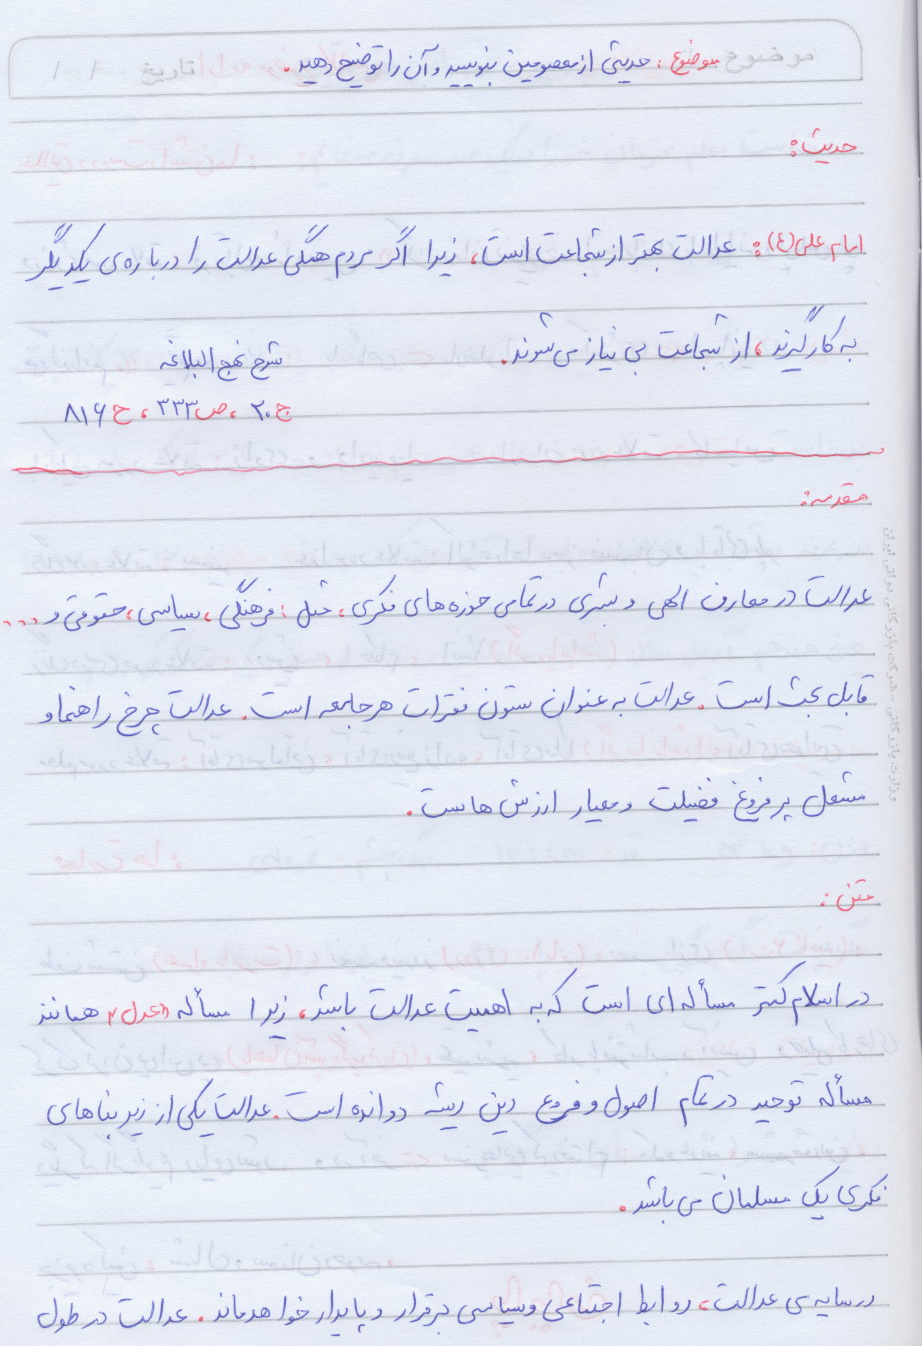 موضوع: حدیثی از معصومین بنویسید و آن را توضیح دهید. تاریخ / /
حدیث:
امام علی (ع): عدالت بهتر از شجاعت است، زیرا اگر مردم همگی عدالت را درباره‌ی یکدیگر
به کار گیرند، از شجاعت بی نیاز می شوند.
شرح نهج البلاغه
ج ۲۰، ص ۳۳۳، ح ۸۱۶
مقدمه:
عدالت در معارف الهی و بشری در تمامی حوزه های فکری، مثل: فرهنگی، سیاسی، حقوقی و ...
قابل بحث است. عدالت به عنوان ستون فقرات هر جامعه است. عدالت چرخ راهنما و
مشعل پر فروغ فضیلت و معیار ارزش هاست.
متن:
در اسلام کمتر مسأله ای است که به اهمیت عدالت باشد، زیرا مسأله «عدل» همانند
مسأله توحید در تمام اصول و فروع دین ریشه دوانده است. عدالت یکی از زیر بناهای
فکری یک مسلمان می باشد.
در سایه ی عدالت، روابط اجتماعی و سیاسی برقرار و پایدار خواهد ماند. عدالت در طول